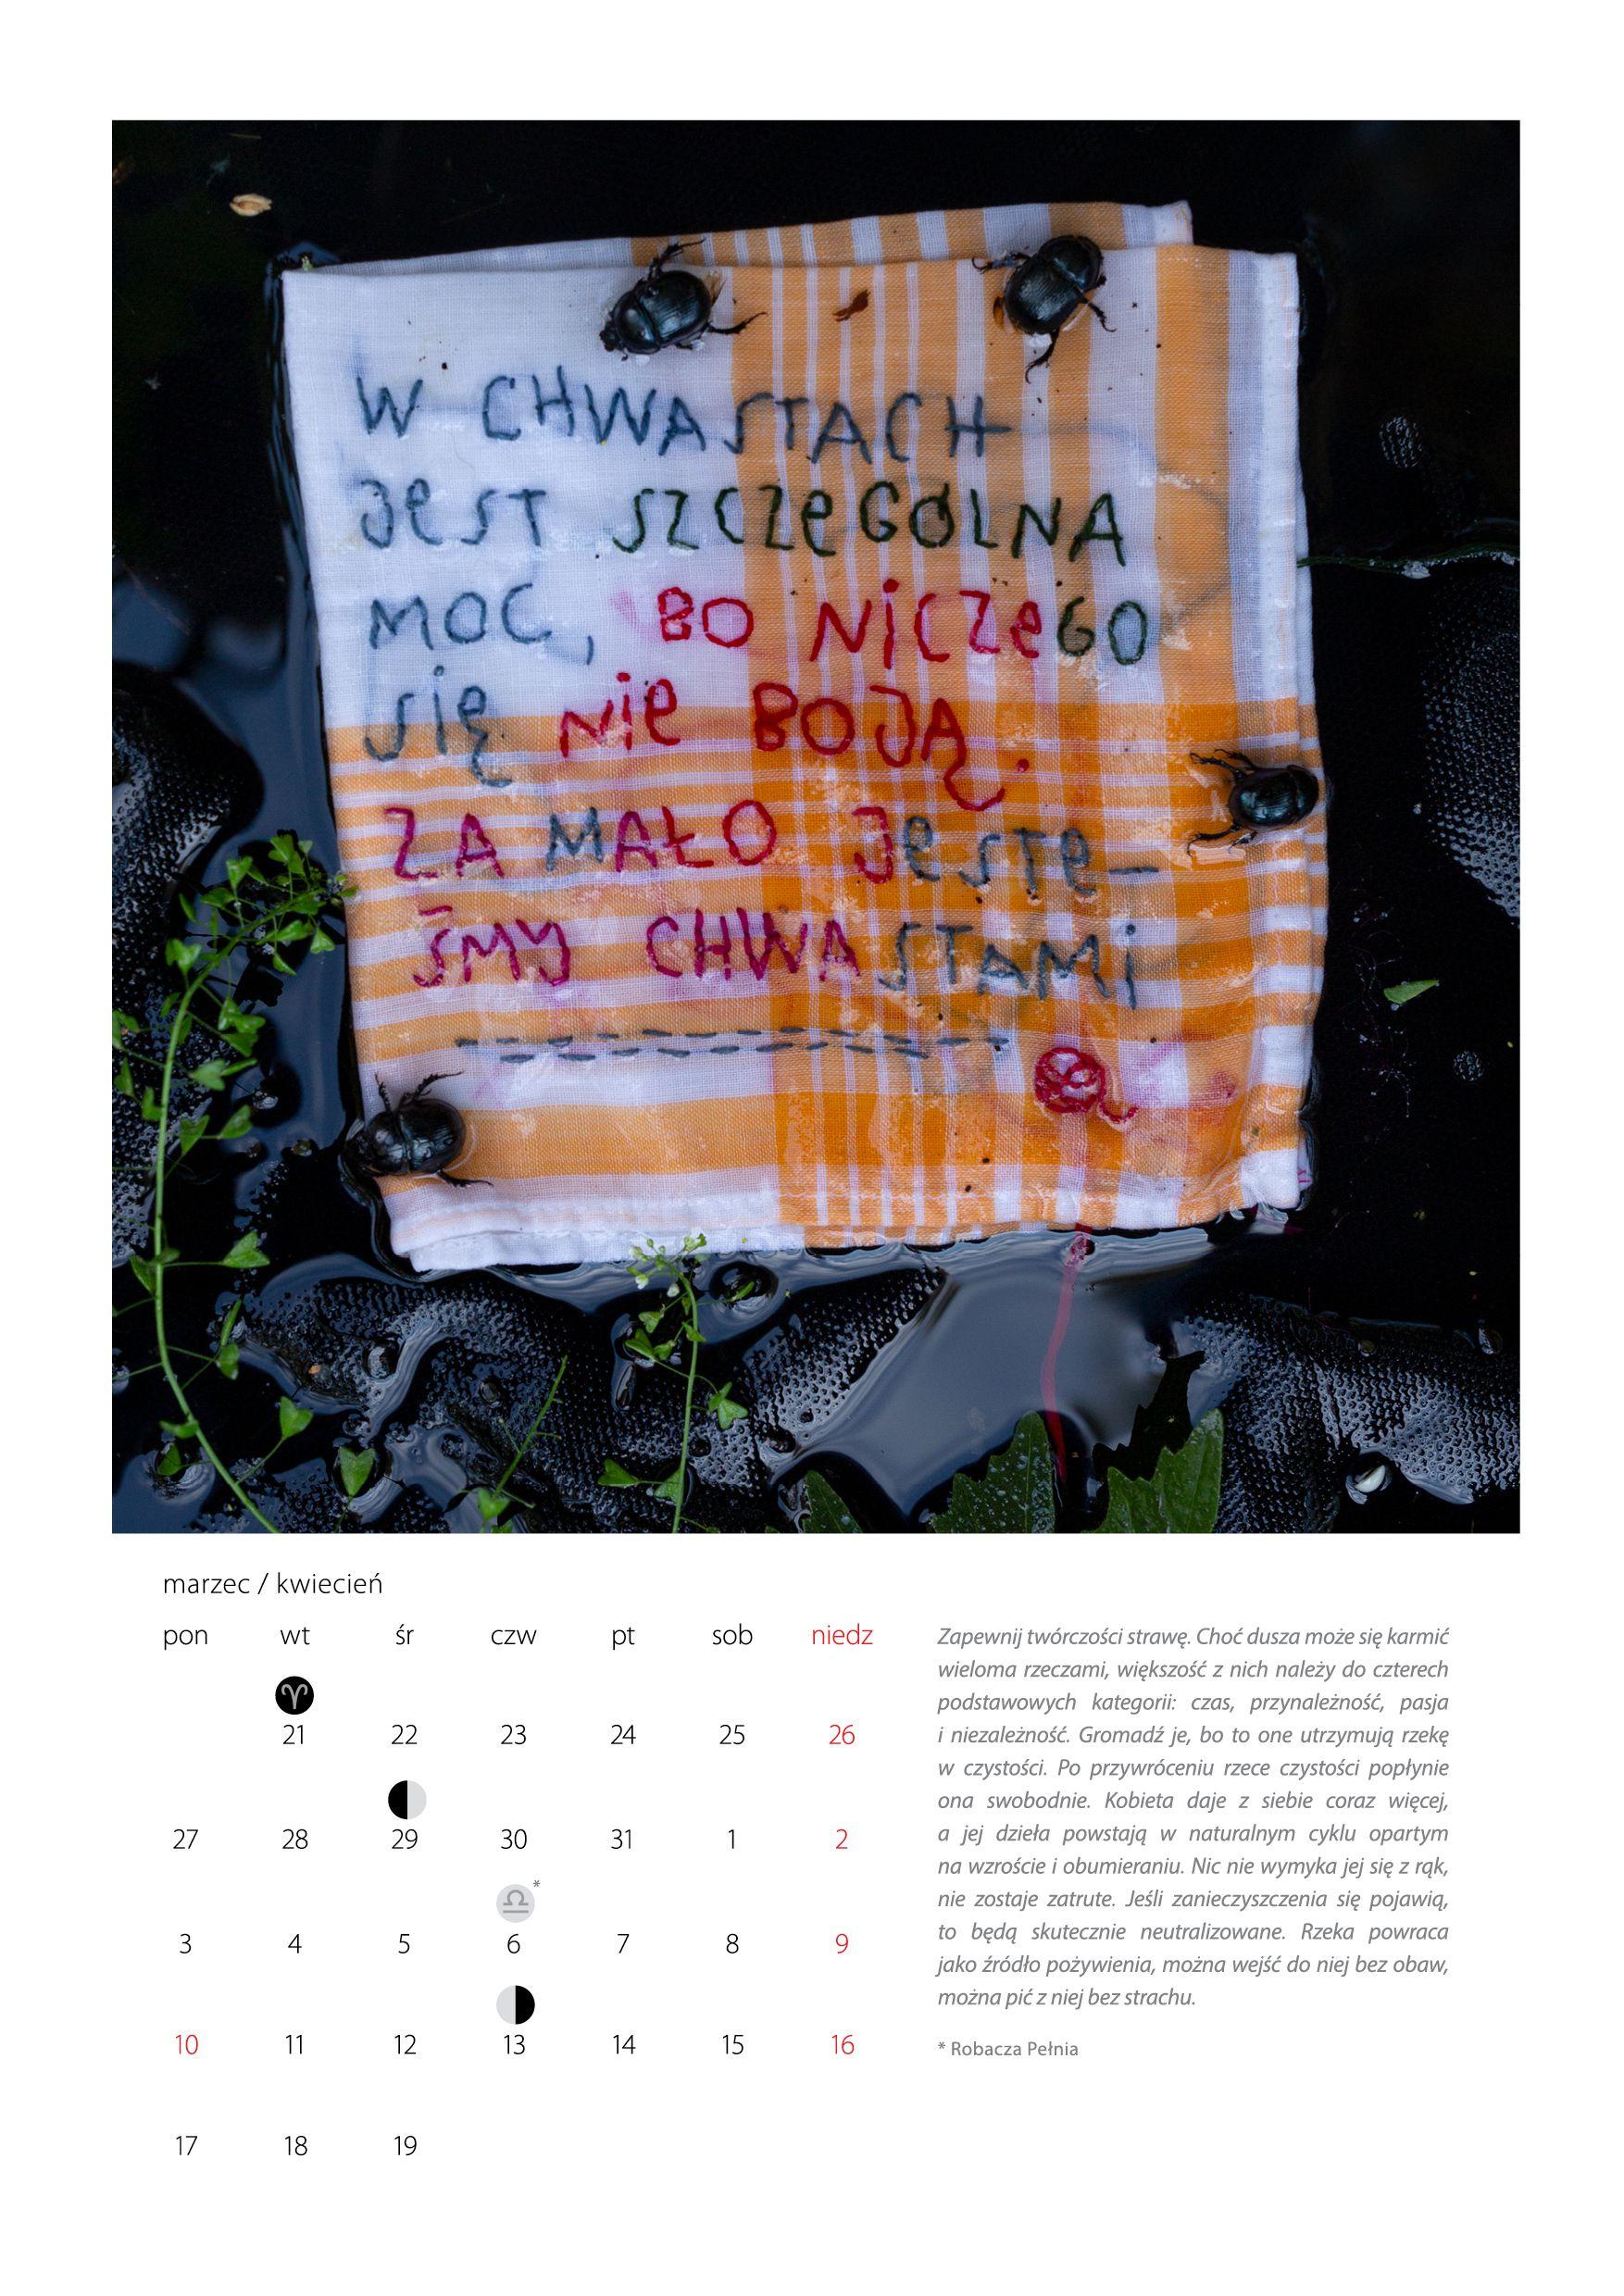 W CHWASTACH
JEST SZCZEGÓLNA
MOC, BO NICZEGO
SIĘ NIE BOJĄ.
ZA MAŁO JESTE–
ŚMY CHWASTAMI
marzec / kwiecień
pon wt śr czw pt sob niedz
21 22 23 24 25 26
27 28 29 30 31 1 2
*
3 4 5 6 7 8 9
10 11 12 13 14 15 16
17 18 19
Zapewnij twórczości strawę. Choć dusza może się karmić
wieloma rzeczami, większość z nich należy do czterech
podstawowych kategorii: czas, przynależność, pasja
i niezależność. Gromadź je, bo to one utrzymują rzekę
w czystości. Po przywróceniu rzece czystości popłynie
ona swobodnie. Kobieta daje z siebie coraz więcej,
a jej dzieła powstają w naturalnym cyklu opartym
na wzroście i obumieraniu. Nic nie wymyka jej się z rąk,
nie zostaje zatrute. Jeśli zanieczyszczenia się pojawią,
to będą skutecznie neutralizowane. Rzeka powraca
jako źródło pożywienia, można wejść do niej bez obaw,
można pić z niej bez strachu.
* Robacza Pełnia